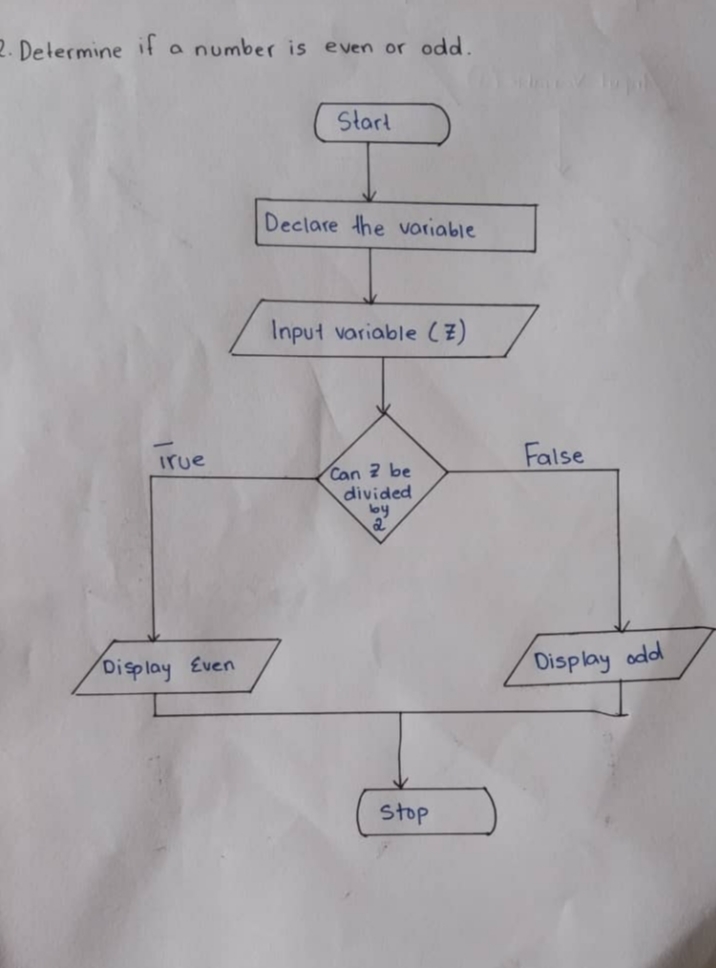 2. Determine if a number is even or odd.
Start
Declare the variable
Input variable (Z)
True
False
Can Z be
divided
by
2
Display Even
Display odd
Stop